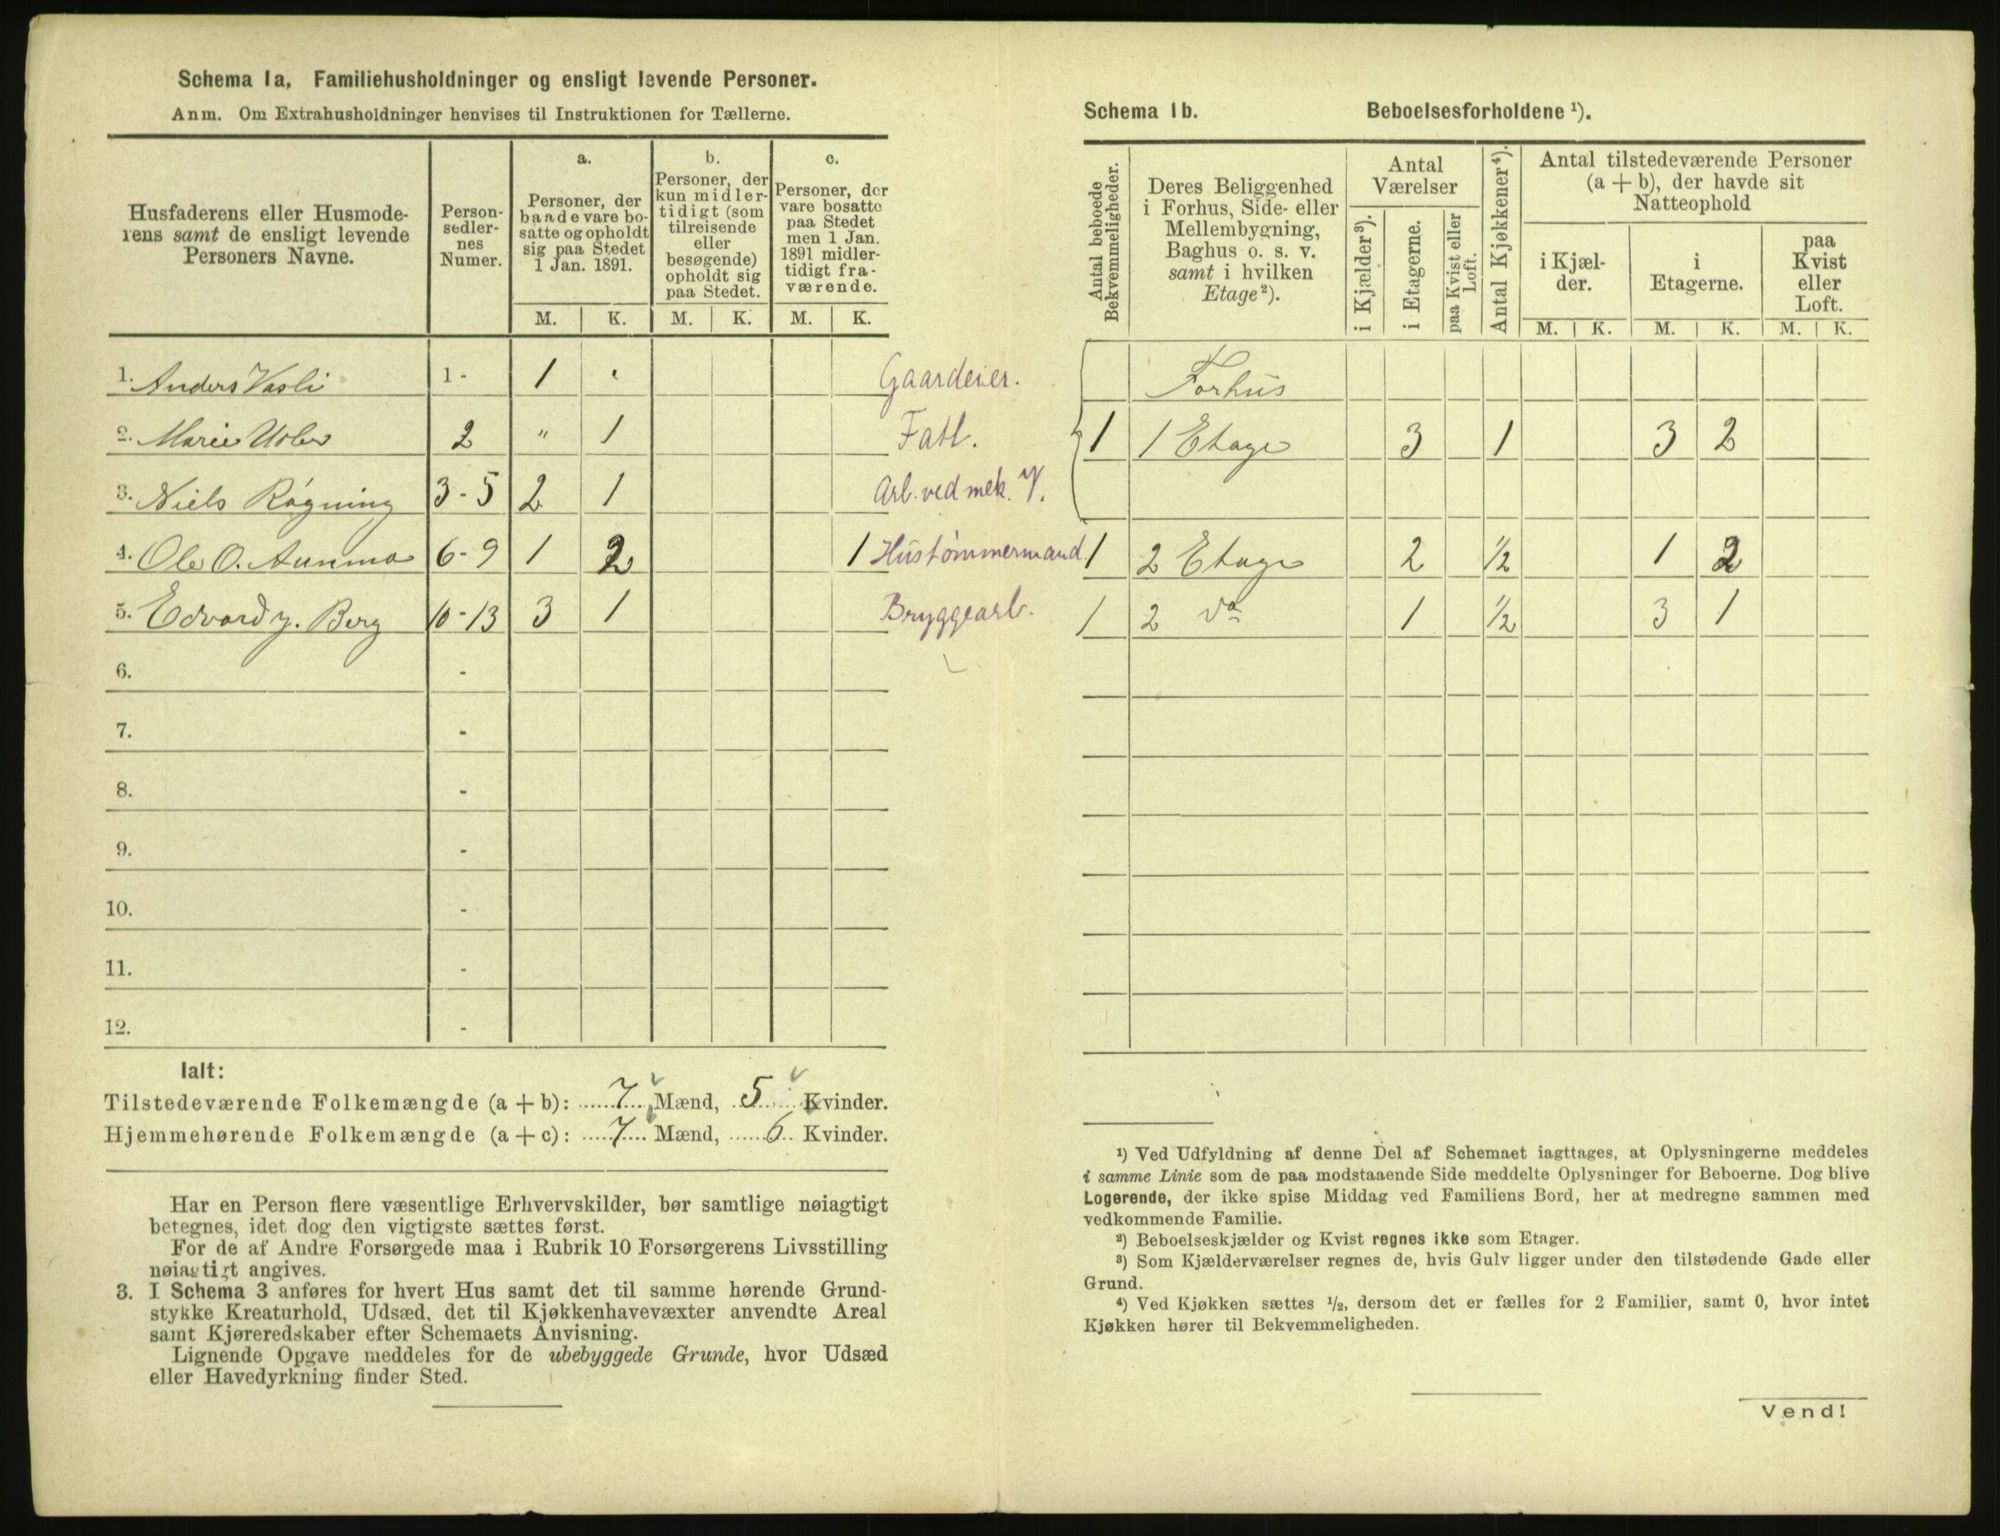 Schema 1a, Familiehusholdninger og ensligt levende Personer.
Anm. Om Extrahusholdninger henvises til Instruktionen for Tællerne.
Husfaderens eller Husmoderens samt de ensligt levende Personers Navne.
Person-
sedler-
nes
Numer.
a.
Personer, der
baade vare bo-
satte og opholdt
sig paa Stedet
1 Jan. 1891.
b.
Personer, der
kun midler-
tidigt (som
tilreisende
eller
besøgende)
opholdt sig
paa Stedet.
c.
Personer, der
vare bosatte
paa Stedet
men 1 Jan.
1891 midler-
tidigt fra-
værende.
M. K. M. K. M. K.
1. Anders Vasli 1 - 1 Gaardeier.
2. Marie 2 " 1 Fatl.
3. Niels Røgning 3 - 5 2 1 Arb. ved mek. V.
4. Ole O. Aunmo 6 - 9 1 2 1 Hustømmermand
5. Edvard Berg 10 - 13 3 1 Bryggearb.
6. -
7. -
8. -
9. -
10. -
11. -
12. -
Ialt:
Tilstedeværende Folkemængde (a + b): 7 Mænd, 5 Kvinder.
Hjemmehørende Folkemængde (a + c): 7 Mænd, 6 Kvinder.
Har en Person flere væsentlige Erhvervskilder, bør samtlige nøiagtigt
betegnes, idet dog den vigtigste sættes først.
For de af Andre Forsørgede maa i Rubrik 10 Forsørgerens Livsstilling
nøiagtigt angives.
3. I Schema 3 anføres for hvert Hus samt det til samme hørende Grund-
stykke Kreaturhold, Udsæd, det til Kjøkkenhavevæxter anvendte Areal
samt Kjøreredskaber efter Schemaets Anvisning.
Lignende Opgave meddeles for de ubebyggede Grunde, hvor Udsæd
eller Havedyrkning finder Sted.
Schema 1b. Beboelsesforholdene ¹).
Antal beboede
Bekvemmeligheder.
Deres Beliggenhed
i Forhus, Side- eller
Mellembygning,
Baghus o. s. v.
samt i hvilken
Etage²).
Antal
Værelser
i Kjælder³).
i Etagerne.
paa Kvist eller
Loft.
Antal Kjøkkener⁴).
Antal tilstedeværende Personer
(a + b), der havde sit
Natteophold
i Kjæl-
der.
i
Etagerne.
paa
Kvist
eller
Loft.
M. K. M. K. M. K.
Forhus
1 1 Etage 3 1 3 2
1 2 Etage 2 ½ 1 2
1 2 do 1 ½ 3 1
¹) Ved Udfyldning af denne Del af Schemaet iagttages, at Oplysningerne meddeles
i samme Linie som de paa modstaaende Side meddelte Oplysninger for Beboerne. Dog blive
Logerende, der ikke spise Middag ved Familiens Bord, her at medregne sammen med
vedkommende Familie.
²) Beboelseskjælder og Kvist regnes ikke som Etager.
³) Som Kjælderværelser regnes de, hvis Gulv ligger under den tilstødende Gade eller
Grund.
⁴) Ved Kjøkken sættes ½, dersom det er fælles for 2 Familier, samt 0, hvor intet
Kjøkken hører til Bekvemmeligheden.
Vend!